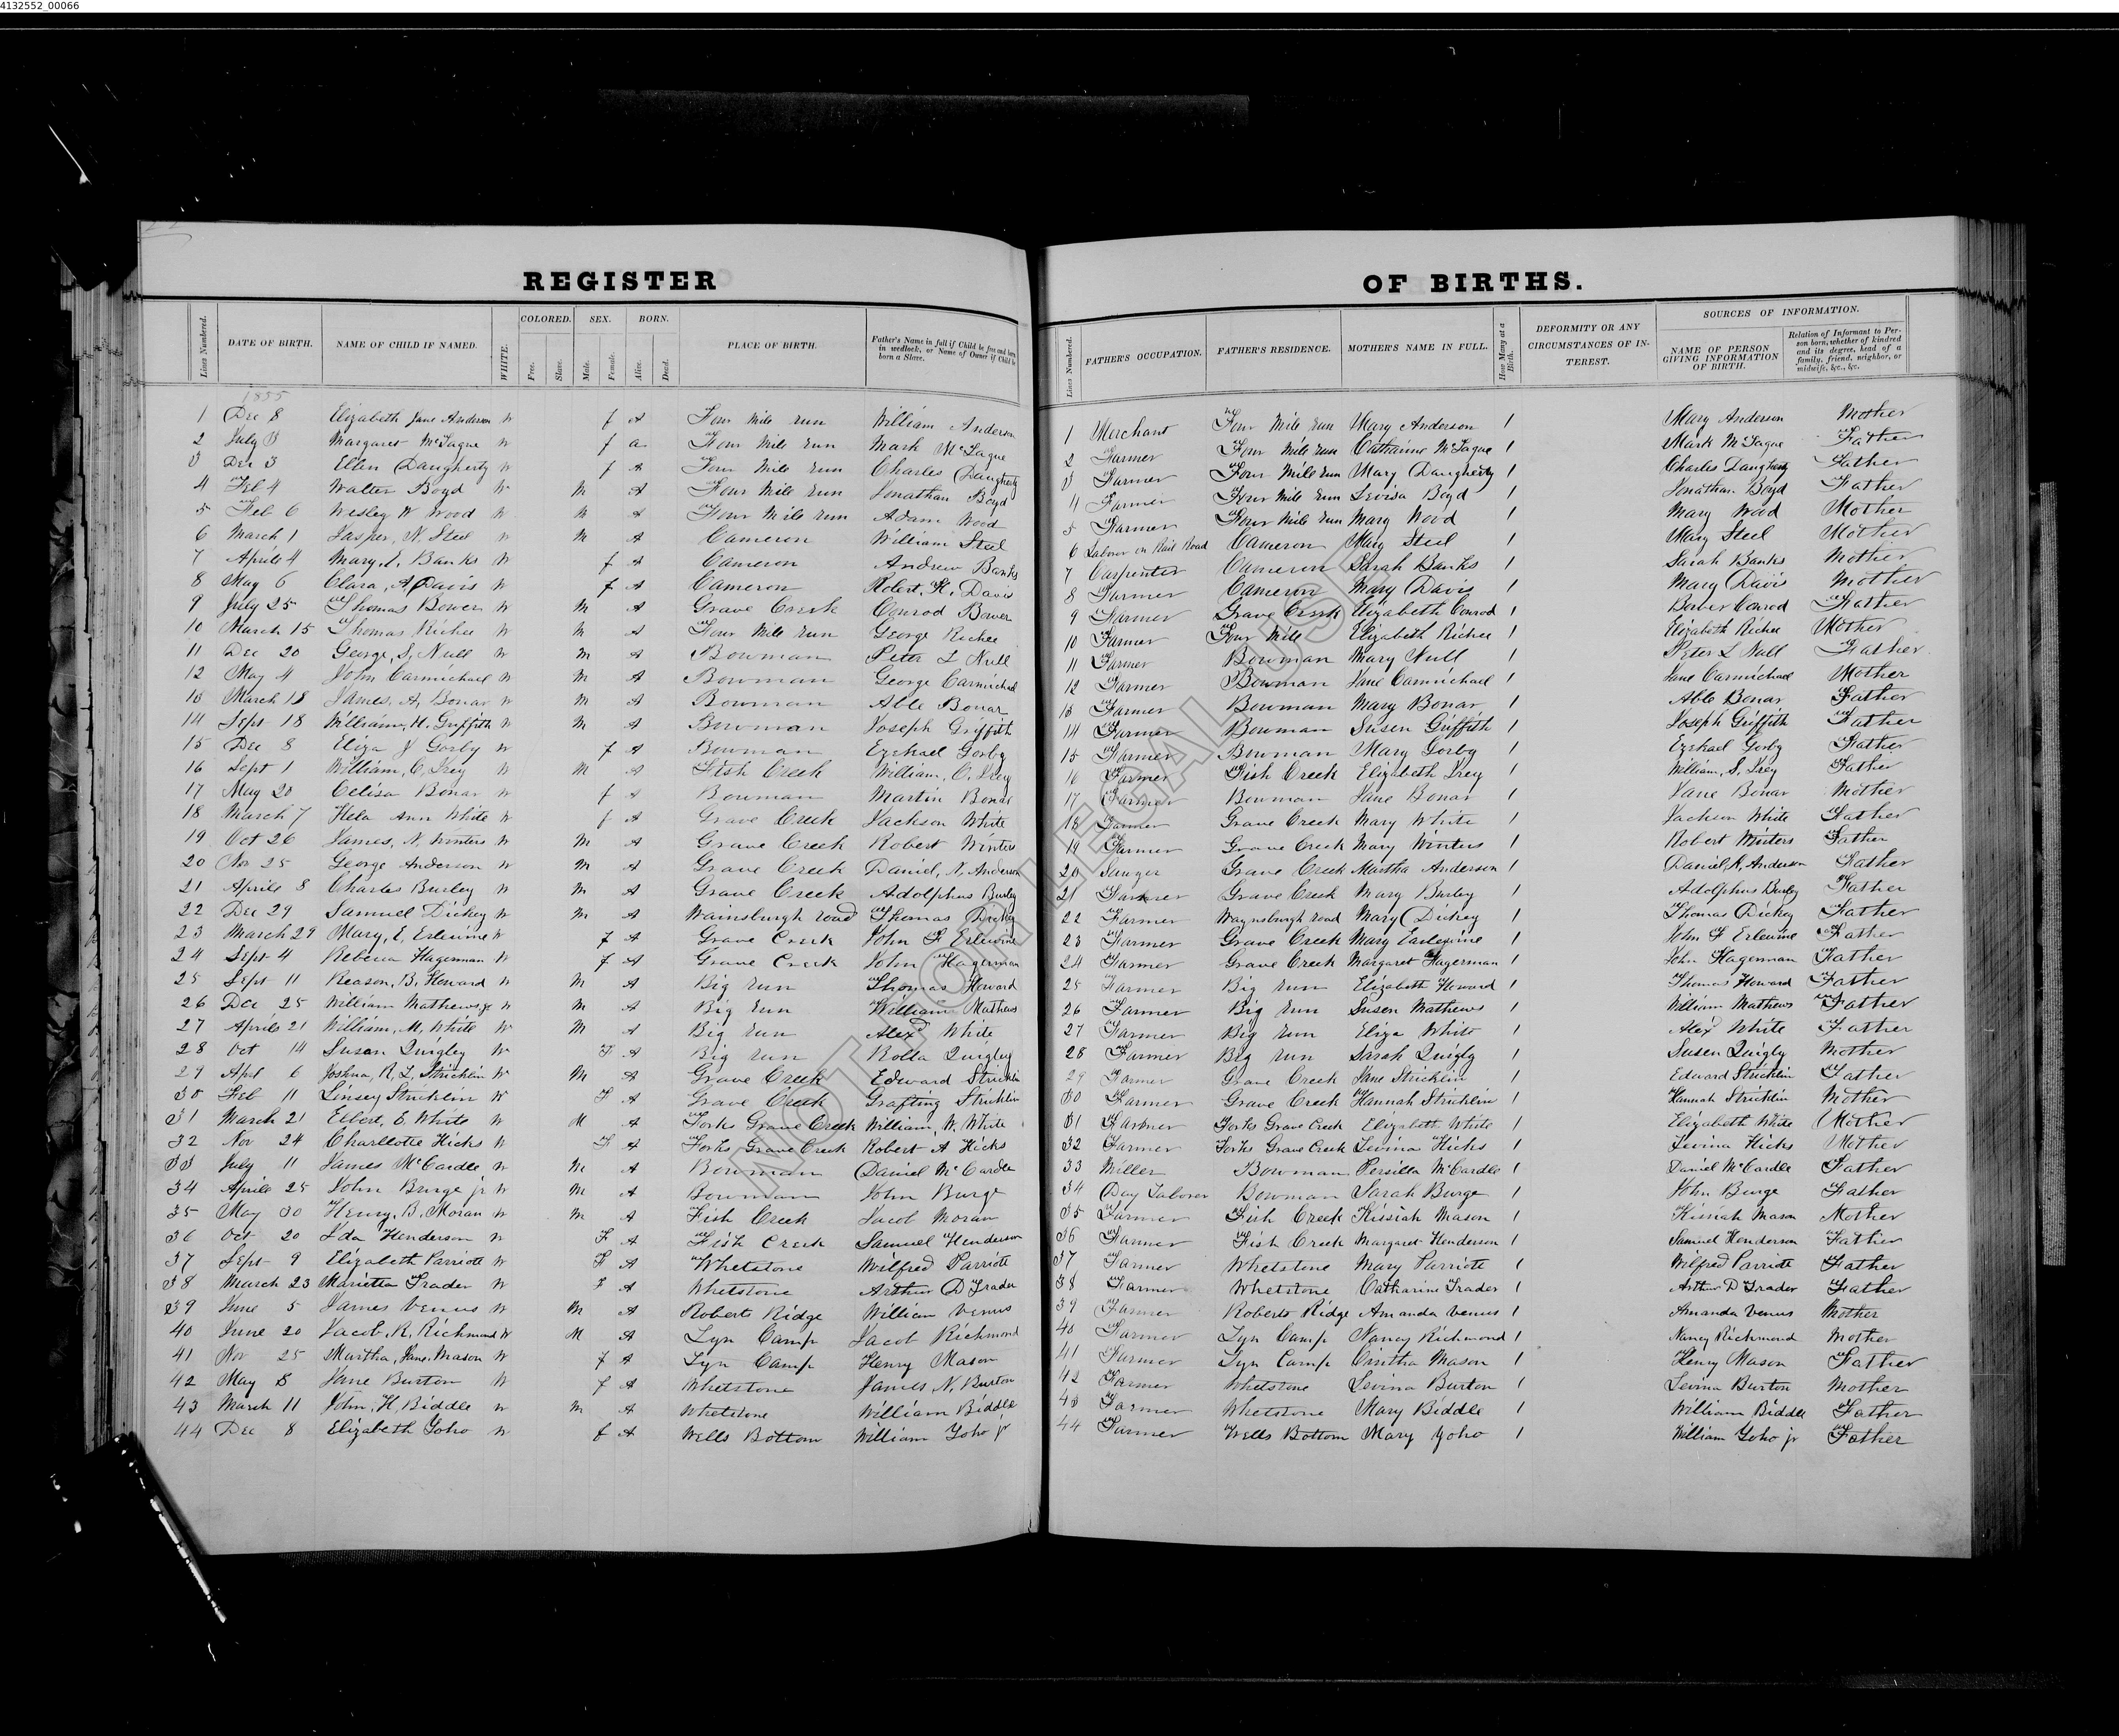 4132552_00066
REGISTER OF BIRTHS.
Lines Numbered. DATE OF BIRTH. NAME OF CHILD IF NAMED. WHITE. COLORED. Free. Slave. SEX. Male. Female. BORN. Alive. Dead. PLACE OF BIRTH. Father's Name in full if Child be free and born in wedlock, or Name of Owner if Child be born a Slave. Lines Numbered. FATHER'S OCCUPATION. FATHER'S RESIDENCE. MOTHER'S NAME IN FULL. How Many at a Birth. DEFORMITY OR ANY CIRCUMSTANCES OF INTEREST. SOURCES OF INFORMATION. NAME OF PERSON GIVING INFORMATION OF BIRTH. Relation of Informant to Person born, whether of kindred and its degree, head of a family, friend, neighbor, or midwife, &c., &c.
1855
1 Dec 8 Elizabeth Jane Anderson W f A Four Mile run William Anderson 1 Merchant Four Mile run Mary Anderson 1 Mary Anderson Mother
2 July 3 Margaret McTague W f a Four Mile run Mark McTague 2 Farmer Four Mile run Catharine McTague 1 Mark McTague Father
3 Dec 3 Ellen Daugherty W f A Four Mile run Charles Daugherty 3 Farmer Four Mile run Mary Daugherty 1 Charles Daugherty Father
4 Feb 4 Walter Boyd W M A Four Mile run Jonathan Boyd 4 Farmer Four Mile run Levisa Boyd 1 Jonathan Boyd Father
5 Feb 6 Wesley W Wood W M A Four Mile run Adam Wood 5 Farmer Four Mile run Mary Wood 1 Mary Wood Mother
6 March 1 Jasper, N. Steel W M A Cameron William Steel 6 Labover on Rail Road Cameron Mary Steel 1 Mary Steel Mother
7 Aprile 4 Mary, E, Banks W f A Cameron Andrew Banks 7 Carpenter Cameron Sarah Banks 1 Sarah Banks Mother
8 May 6 Clara, A, Davis W f A Cameron Robert, H. Davis 8 Farmer Cameron Mary Davis 1 Mary Davis Mother
9 July 25 Thomas Bower W M A Grave Creek Conrod Bower 9 Farmer Grave Creek Elizabeth Conrod 1 Bower Conrod Father
10 March 15 Thomas Richee W M A Four Mile run George Richee 10 Farmer Four Mile Elizabeth Richee 1 Elizabeth Richee Mother
11 Dec 20 George, S, Null W M A Bowman Peter L Null 11 Farmer Bowman Mary Null 1 Peter L Null Father
12 May 4 John Carmichael W M A Bowman George Carmichael 12 Farmer Bowman Jane Carmichael 1 Jane Carmichael Mother
13 March 18 James, A, Bonar W M A Bowman Able Bonar 13 Farmer Bowman Mary Bonar 1 Able Bonar Father
14 Sept 18 William, H. Griffith W M A Bowman Joseph Griffith 14 Farmer Bowman Susen Griffith 1 Joseph Griffith Father
15 Dec 8 Eliza J Gorby W f A Bowman Ezekael Gorby 15 Farmer Bowman Mary Gorby 1 Ezekael Gorby Father
16 Sept 1 William, C, W M A Fish Creek William, C. 16 Farmer Fish Creek Elizabeth 1 William, S. Father
17 May 20 Celisa Bonar W f A Bowman Martin Bonar 17 Farmer Bowman Jane Bonar 1 Jane Bonar Mother
18 March 7 Hela Ann White W f A Grave Creek Jackson White 18 Farmer Grave Creek Mary White 1 Jackson White Father
19 Oct 26 James, N. Winters W M A Grave Creek Robert Winters 19 Farmer Grave Creek Mary Winters 1 Robert Winters Father
20 Nov 25 George Anderson W M A Grave Creek Daniel, N. Anderson 20 Grave Creek Martha Anderson 1 Daniel, N, Anderson Father
21 Aprile 8 Charles Burley W M A Grave Creek Adolphus Burley 21 Farmer Grave Creek Mary Burley 1 Adolphus Burley Father
22 Dec 29 Samuel Dickey W M A Wainsburgh road Thomas Dickey 22 Farmer Waynsburgh road Mary Dickey 1 Thomas Dickey Father
23 March 29 Mary, E, Erlewine W f A Grave Creek John F Erlewine 23 Farmer Grave Creek Mary Earlewine 1 John F Erlewine Father
24 Sept 4 Rebecca Hagerman W f A Grave Creek John Hagerman 24 Farmer Grave Creek Margaret Hagerman 1 John Hagerman Father
25 Sept 11 Reason, B, Howard W M A Big run Thomas Howard 25 Farmer Big run Elizabeth Howard 1 Thomas Howard Father
26 Dec 25 William Mathews jr W M A Big run William Mathews 26 Farmer Big run Susen Mathews 1 William Mathews Father
27 Aprile 21 William, M, White W M A Big run Alexd White 27 Farmer Big run Eliza White 1 Alexd White Father
28 Oct 14 Susan Quigley W F A Big run Rolla Quigley 28 Farmer Big run Sarah Quigly 1 Susen Quigly Mother
29 Aprl 6 Joshua, R, L, Stricklin W M A Grave Creek Edward Stricklin 29 Farmer Grave Creek Jane Stricklin 1 Edward Stricklin Father
30 Feb 11 Linsey Stricklin W F A Grave Creek Grafting Stricklin 30 Farmer Grave Creek Hannah Stricklin 1 Hannah Stricklin Mother
31 March 21 Elbert, E. White W M A Forks Grave Creek William, W. White 31 Farmer Forks Grave Creek Elizabeth White 1 Elizabeth White Mother
32 Nov 24 Charllotte Hicks W F A Forks Grave Creek Robert A Hicks 32 Farmer Forks Grave Creek Levina Hicks 1 Levina Hicks Mother
33 July 11 James McCardle W M A Bowman Daniel McCardle 33 Miller Bowman Persilla McCardle 1 Daniel McCardle Father
34 Aprile 25 John Burge jr W M A Bowman John Burge 34 Day Labover Bowman Sarah Burge 1 John Burge Father
35 May 30 Henry, B. Moran W M A Fish Creek Jacob Moran 35 Farmer Fish Creek Kissiah Mason 1 Kissiah Mason Mother
36 Oct 20 Ida Henderson W F A Fish Creek Samuel Henderson 36 Farmer Fish Creek Margaret Henderson 1 Samuel Henderson Father
37 Sept 9 Elizabeth Parriott W F A Whetstone Wilfred Parriott 37 Farmer Whetstone Mary Parriott 1 Wilfred Parriott Father
38 March 23 Marietta Trader W F A Whetstone Arthur D Trader 38 Farmer Whetstone Catharine Trader 1 Arthur D Trader Father
39 June 5 James Venus W M A Roberts Ridge William Venus 39 Farmer Roberts Ridge Amanda Venus 1 Amanda Venus Mother
40 June 20 Jacob, R, Richmond W M A Lyn Camp Jacob Richmond 40 Farmer Lyn Camp Nancy Richmond 1 Nancy Richmond Mother
41 Nov 25 Martha, Jane, Mason W f A Lyn Camp Henry Mason 41 Farmer Lyn Camp Cinitha Mason 1 Henry Mason Father
42 May 8 Jane Burton W f A Whetstone James N, Burton 42 Farmer Whetstone Levina Burton 1 Levina Burton Mother
43 March 11 John, H, Biddle W M A Whetstone William Biddle 43 Farmer Whetstone Mary Biddle 1 William Biddle Father
44 Dec 8 Elizabeth Yoho W f A Wells Bottom William Yoho jr 44 Farmer Wells Bottom Mary Yoho 1 William Yoho jr Father
NOT FOR LEGAL USE